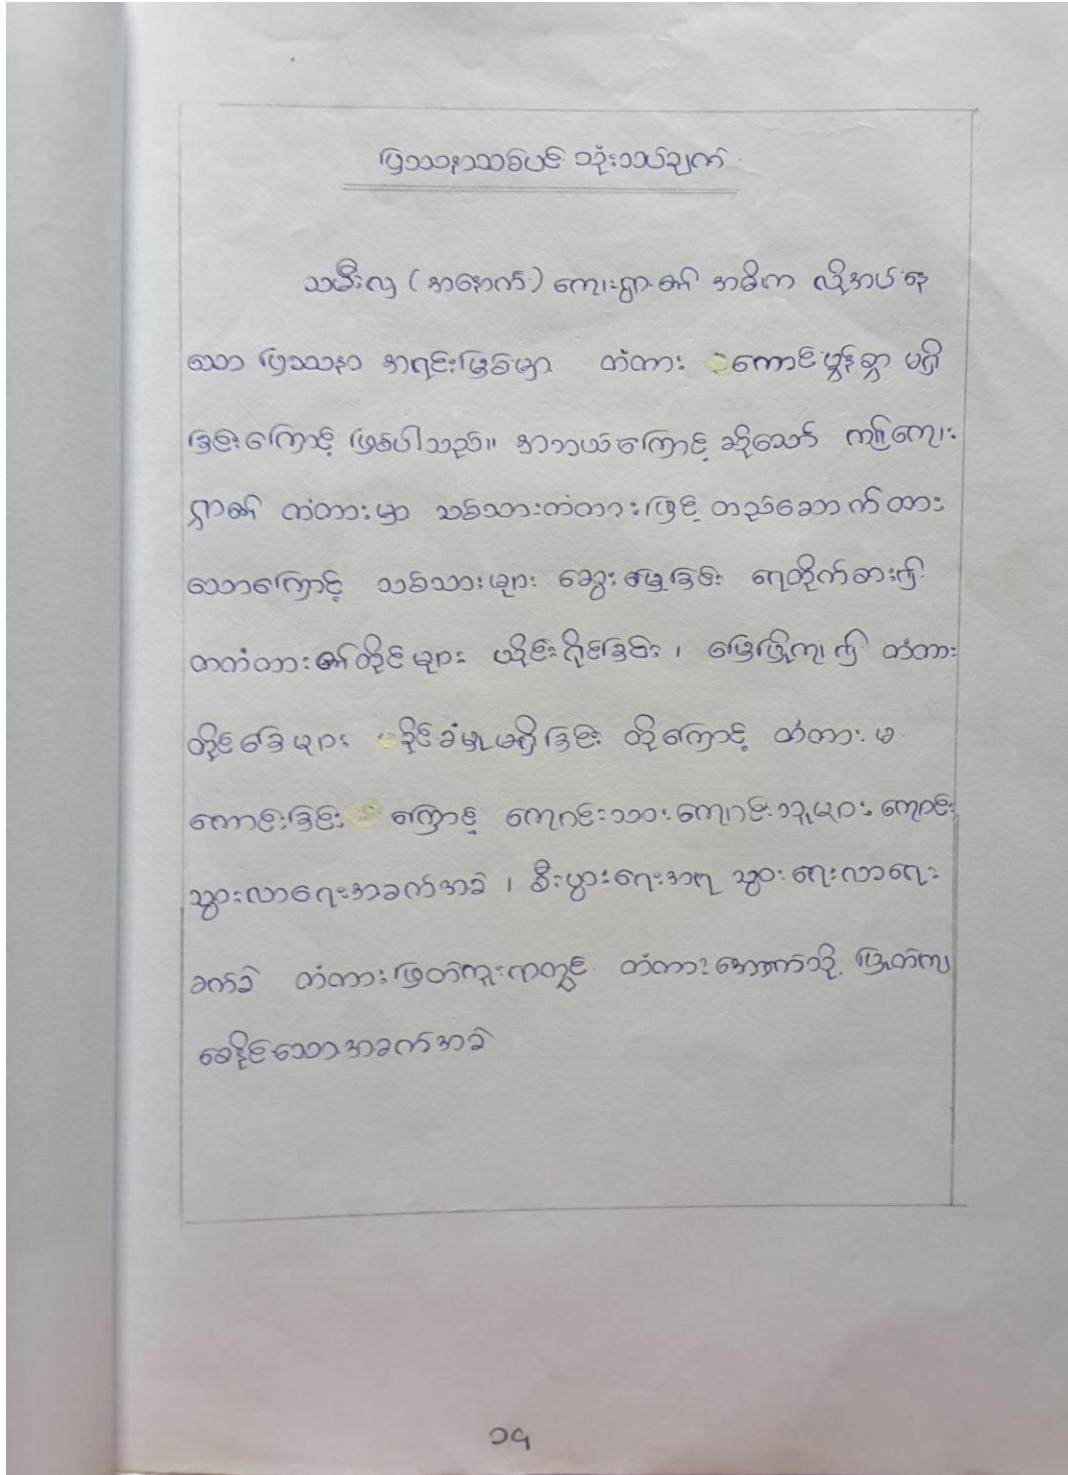 ပြဿနာသစ်ပင် သုံးသပ်ချက်
သမီးလှ (အနောက်) ကျေးရွာ၏ အဓိက လိုအပ်နေ
သော ပြဿနာ အရင်းဖြစ်မှာ တံတား ကောင်းမွန်စွာ မရှိ
ခြင်းကြောင့် ဖြစ်ပါသည်။ အဘယ်ကြောင့် ဆိုသော် ကျွန်ုပ်ကျေး
ရွာ၏ တံတားမှာ သစ်သားတံတားဖြင့် တည်ဆောက်ထား
သောကြောင့် သစ်သားများ ဆွေးမြေ့ခြင်း ရေတိုက်စား၍
တတံတား၏တိုင်များ ယိုင်းဂိုင်ခြင်း ၊ မြေပြိုကျ၍ တံတား
တိုင်ခြေများ ခိုင်ခံမှုမရှိခြင်း တို့ကြောင့် တံတား မ
ကောင်းခြင်း ကြောင့် ကျောင်းသားကျောင်းသူများ ကျောင်း
သွားလာရေးအခက်အခဲ ၊ စီးပွားရေးအရ သွားရေးလာရေး
ခက်ခဲ တံတားဖြတ်ကူးရာတွင် တံတားအောက်သို့ ပြုတ်ကျ
စေနိုင်သောအခက်အခဲ
၁၄